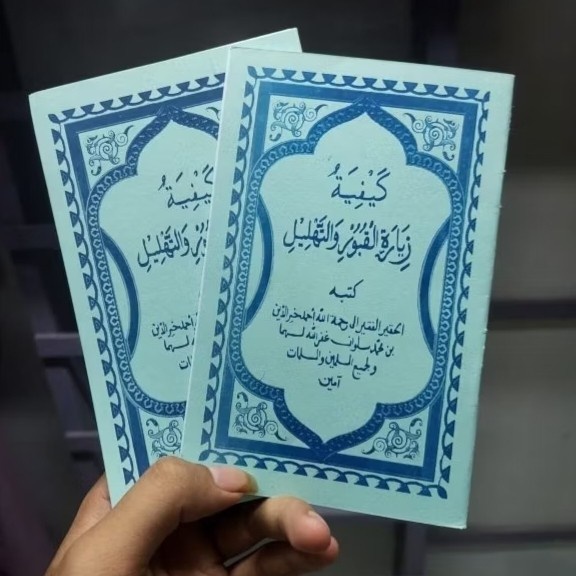 كَيْفِيَةُ
زِيَارَةِ الْقُبُوْرِ وَالتَّهْلِيْلِ
كتبه
الحقير الفقير الى رحمة الله أحمد خيرالدين
بن محمد سلوان غفرالله لهما
ولجميع المسلمين والمسلمات
آمين
كَيْفِيَةُ
الْقُبُوْرِ وَالتَّهْلِيْلِ
أحمد خيرالدين
لهما